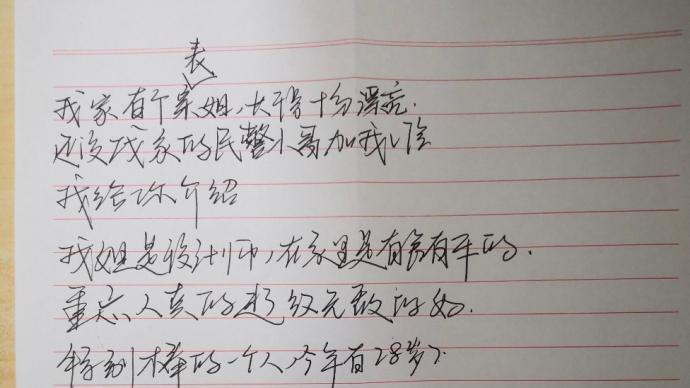 表
我家有个亲姐,大得十分漂亮.
还没成家的民警小哥加我心哈
我给你介绍
我姐是设计师,在家里是有房有车的.
重点人真的超级无敌的好.
特别棒的一个人,今年有28岁了.